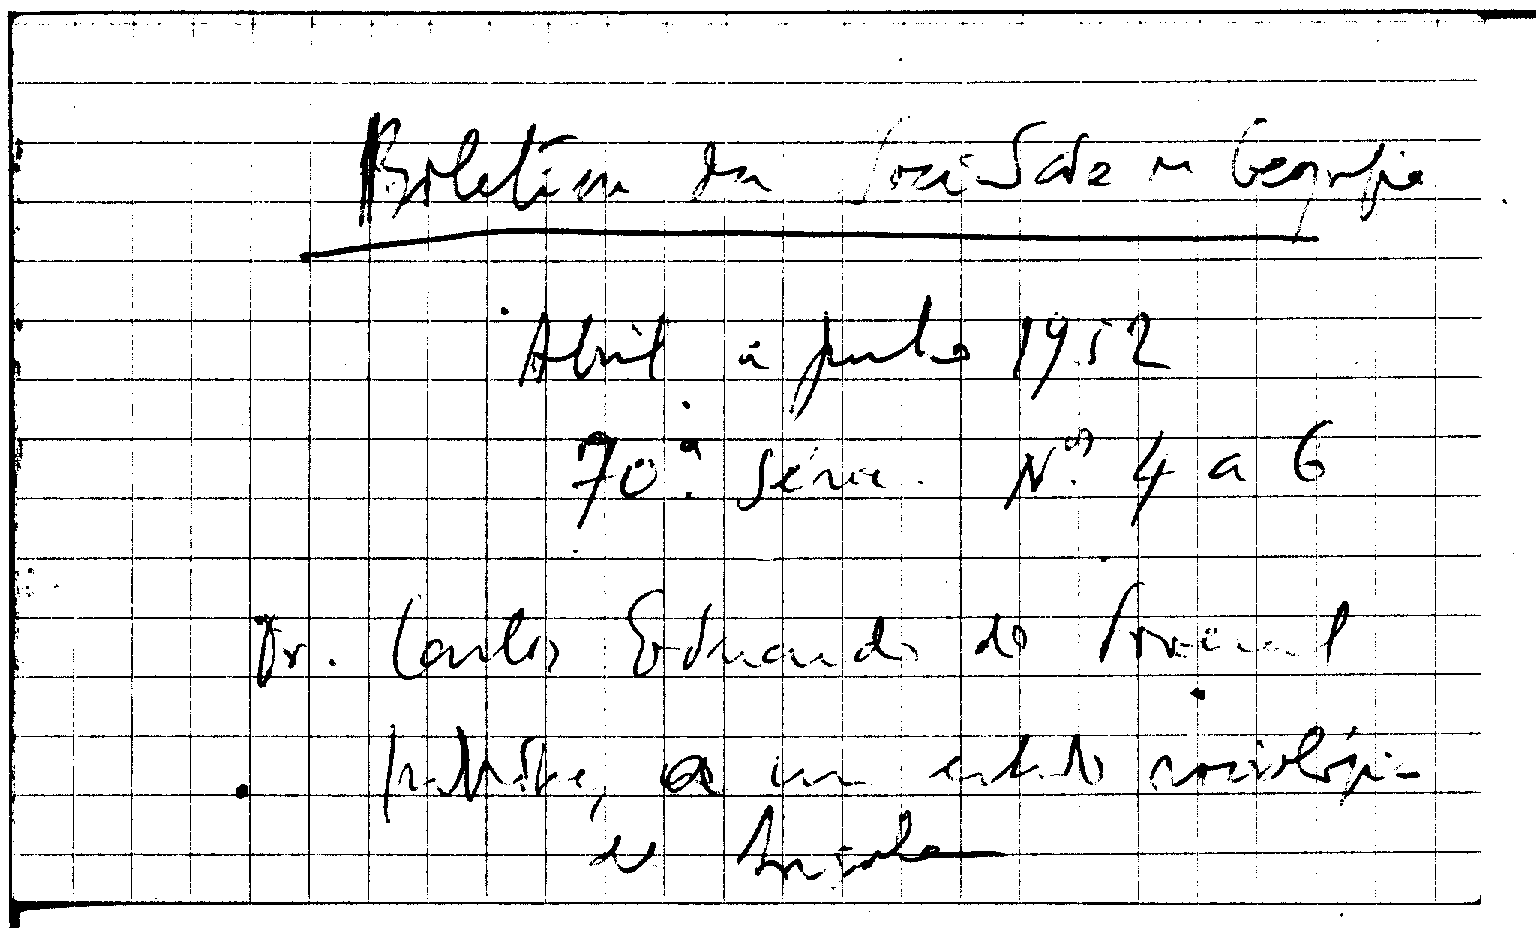 Boletim da Sociedade de Geografia
Abril a Junho 1952
70.ª série. N.os 4 a 6
Dr. Carlos Eduardo de Soveral
a um estudo sociológico
de Angola